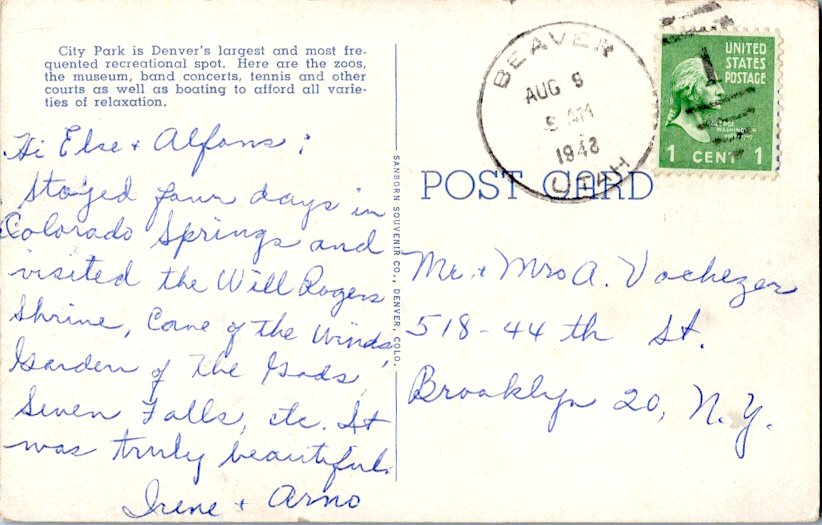 City Park is Denver's largest and most fre-
quented recreational spot. Here are the zoos,
the museum, band concerts, tennis and other
courts as well as boating to afford all varie-
ties of relaxation.
Hi Else + Alfons;
Stayed four days in
Colorado Springs and
visited the Will Rogers
Shrine, Cave of the Winds,
Garden of The Gods,
Seven Falls, etc. It
was truly beautiful.
Irene + Arno
SANBORN SOUVENIR CO., DENVER, COLO.
BEAVER
AUG 9
9 AM
1948
UTAH
UNITED
STATES
POSTAGE
WASHINGTON
1 CENT 1
POST CARD
Mr. + Mrs A. Vochezer
518-44 th St.
Brooklyn 20, N.Y.